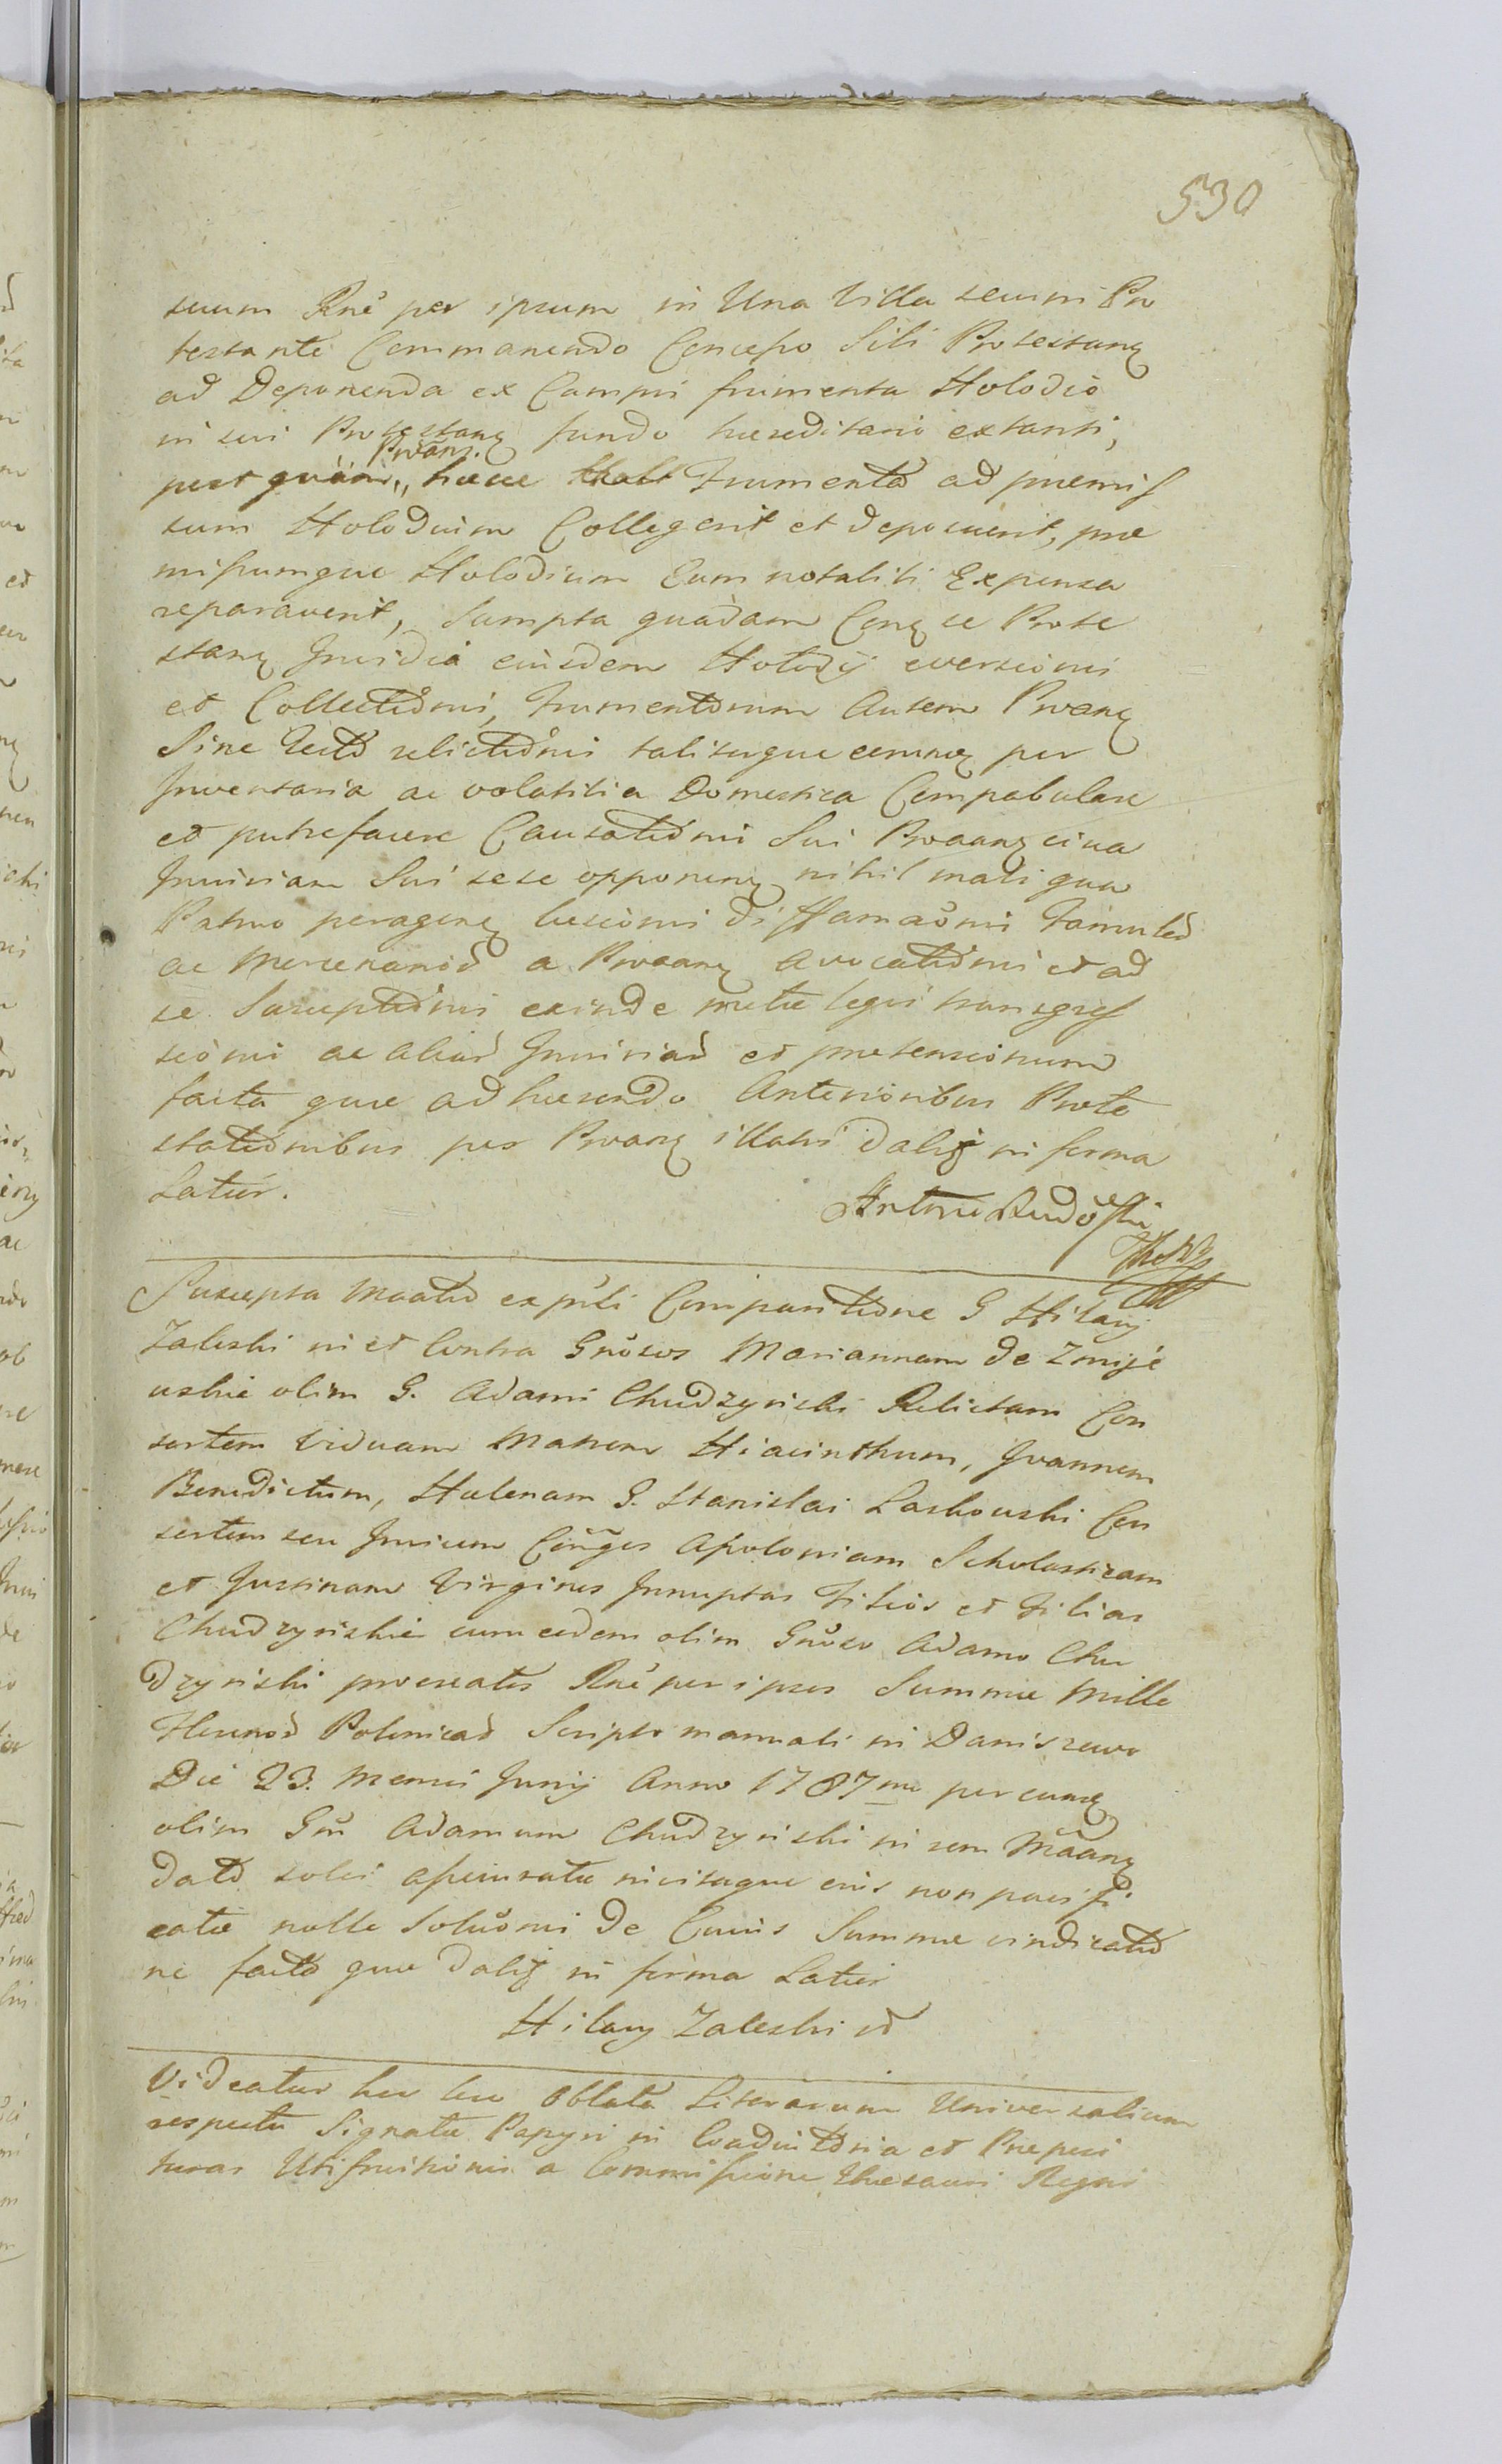 530
suum Rně per ipsum in Una Villa secum Pro
testante Commanendo Concesso Sibi Protestanę
ad Deponenda ex Campis frumenta Holodio
in sui Protestanę fundo haereditario extanti,
Prvans.
postquam,, haece Frumenta ad praemis
sum Holodium Collegerit et deposuerit, prae
missumque Holodium Cum notabili Expensa
reparaverit, Sumpta quadam Conę se Prote
stanę Invidia eiusdem Holodij eversionis
et Collectionis, Frumentorum Autem Prvanę
Sine Tecto relictionis taliterque per
Inventaria ac volatilia Domestica Compabulare
et putrefacere Causationis Sui Prvanę circa
Iniuriam Sui sese opponenę nihil mali quo
Patruo peragenę laesionis diffamaõnis Famuled
ac Mercenariod a Prvanę Avocationis et ad
se Susceptionis exinde metae legis transgres
sionis ac aliard Iniuriard et praetensionum
facta que adhaerendo Anterioribus Prote
stationibus per Prvanę illatis dalij in forma
Latius.
Antoni
Suscepta Maatio expřli Comparitione G Hilarij
Zaleski in et Contra Gnosos Mariannam de Zmije
uskie olim G. Adami Chudzynski Relictam Con
sortem Viduam Matrem Hiacinthum, Joannem
Benedictum, Helenam G. Stanislai Laskouski Con
sortem seu Invicem Coniges Apoloniam Scholasticam
et Justinam Virgines Innuptas Filios et Filias
Chudzynskie cum eodem olim Gnoso Adamo Chu
dzynski procreatos Rně per ipsos Summae Mille
Flrenod Polonicad Scripto manuali in Daniszewo
Die 23. Mensis Junij Anno 1787mo per eundę
olim Gm Adamum Chudzynski in rem Maanę
dato solvi assecuratae nicitaque eius non pacifi
catae nolle Soluõnis de Cuius Summae vindicatio
ne facto que dalij in forma Latius
Hilary Zaleski
Videatur hoc loco Oblata Literarum Universalium
respectu Signatae Papyri in et Praepeci
turas a Commissione Thesauri Regni